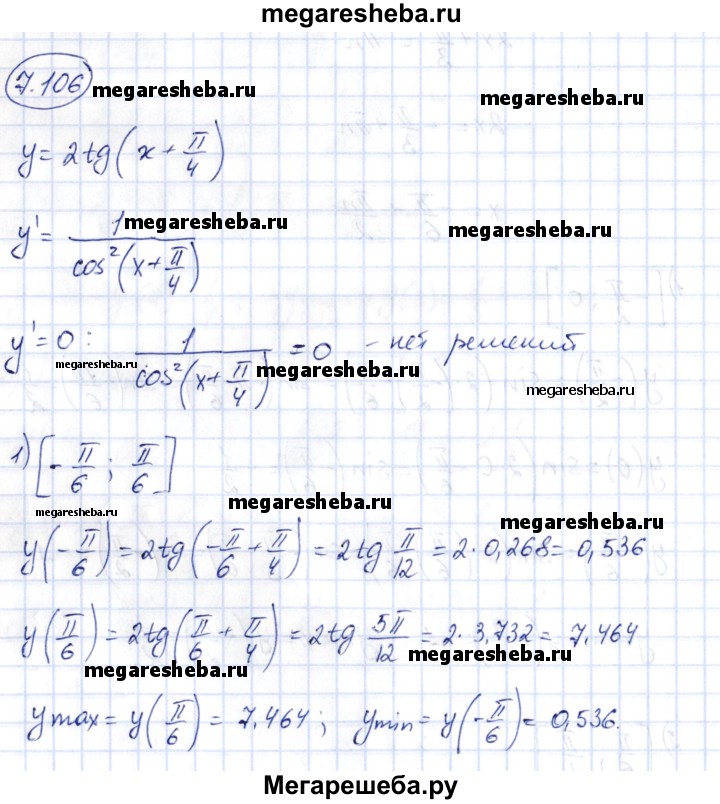 megaresheba.ru
7.106 megaresheba.ru megaresheba.ru
y = 2tg(x + π/4)
y' = 1/cos²(x + π/4) megaresheba.ru megaresheba.ru
y' = 0 : 1/cos²(x + π/4) = 0 - нет решений
megaresheba.ru megaresheba.ru megaresheba.ru
1) [-π/6 ; π/6]
megaresheba.ru megaresheba.ru megaresheba.ru
y(-π/6) = 2tg(-π/6 + π/4) = 2tg π/12 = 2·0,268 = 0,536
y(π/6) = 2tg(π/6 + π/4) = 2tg 5π/12 = 2·3,732 = 7,464
megaresheba.ru megaresheba.ru
ymax = y(π/6) = 7,464 ; ymin = y(-π/6) = 0,536.
Мегарешеба.ру